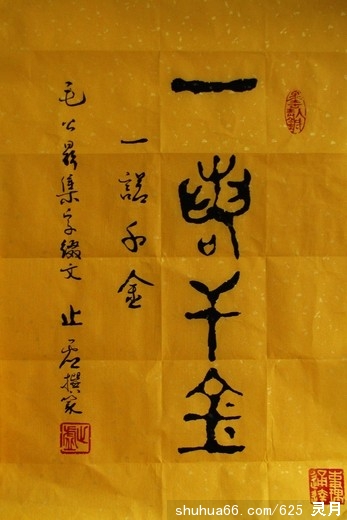 一諾千金
一諾千金
毛公鼎集字綴文 止虛撰篆
止虛
事理通達
shuhua66.com/625 灵月